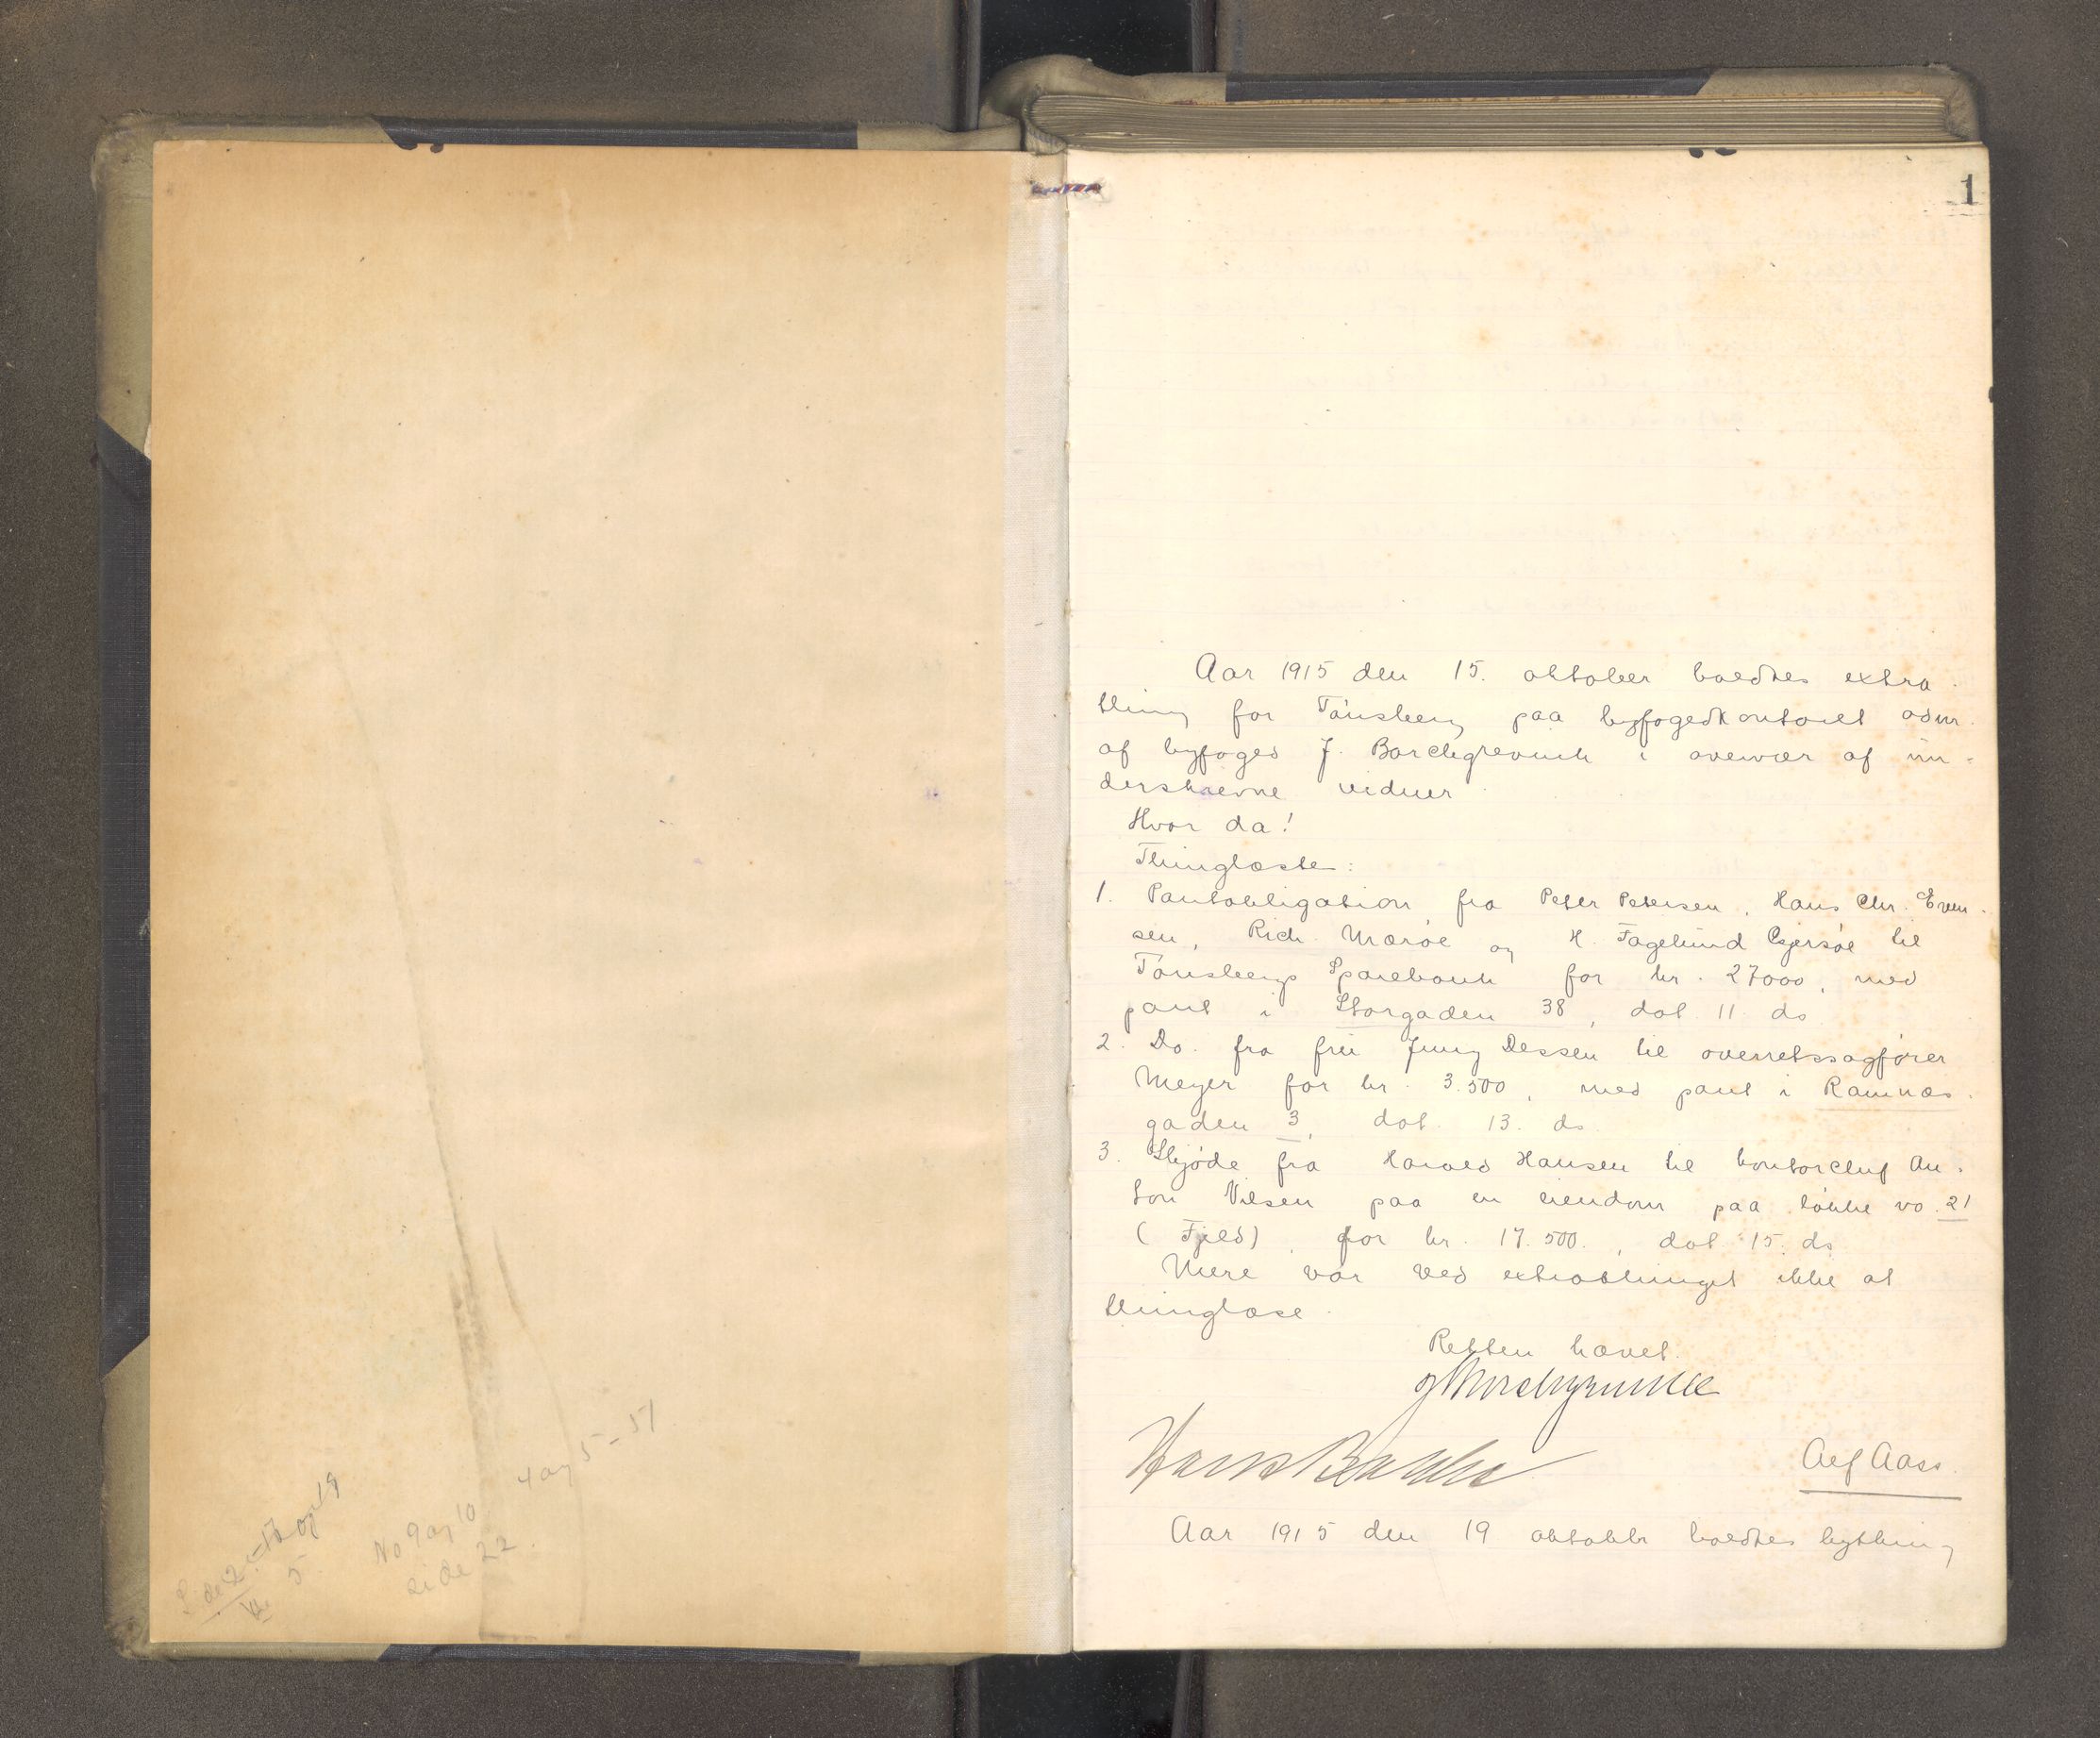 1
Aar 1915 den 15. oktober holdtes extra
thing for Tønsberg paa byfogedkontoret adm.
af byfoged J. Borchgrevink i overvær af un-
derskrevne vidner.
Hvor da!
Thinglæste:
1. Pantobligation fra Peter Petersen, Hans Chr. Even-
sen, Rich. Mærøe og H. Fagelund Gjersøe til
Tønsbergs Sparebank for kr. 27000, med
pant i Storgaden 38, dat. 11. ds
2. Do. fra fru Jenny Dessen til overretssagfører
Meyer for kr. 3.500, med pant i Ramnæs-
gaden 3, dat. 13. ds.
3. Skjøde fra Harald Hansen til kontorchef An-
ton Nilsen paa en eiendom paa løkke no. 21
(Fjeld), for kr. 17.500., dat. 15. ds
Mere var ved extrathinget ikke at
thinglæse.
Retten hævet.
J Borchgrevink
Hans Alf Aass.
Aar 1915 den 19 oktober holdtes bything
4 og 5 - 51
No 9 og 10
side 22.
5